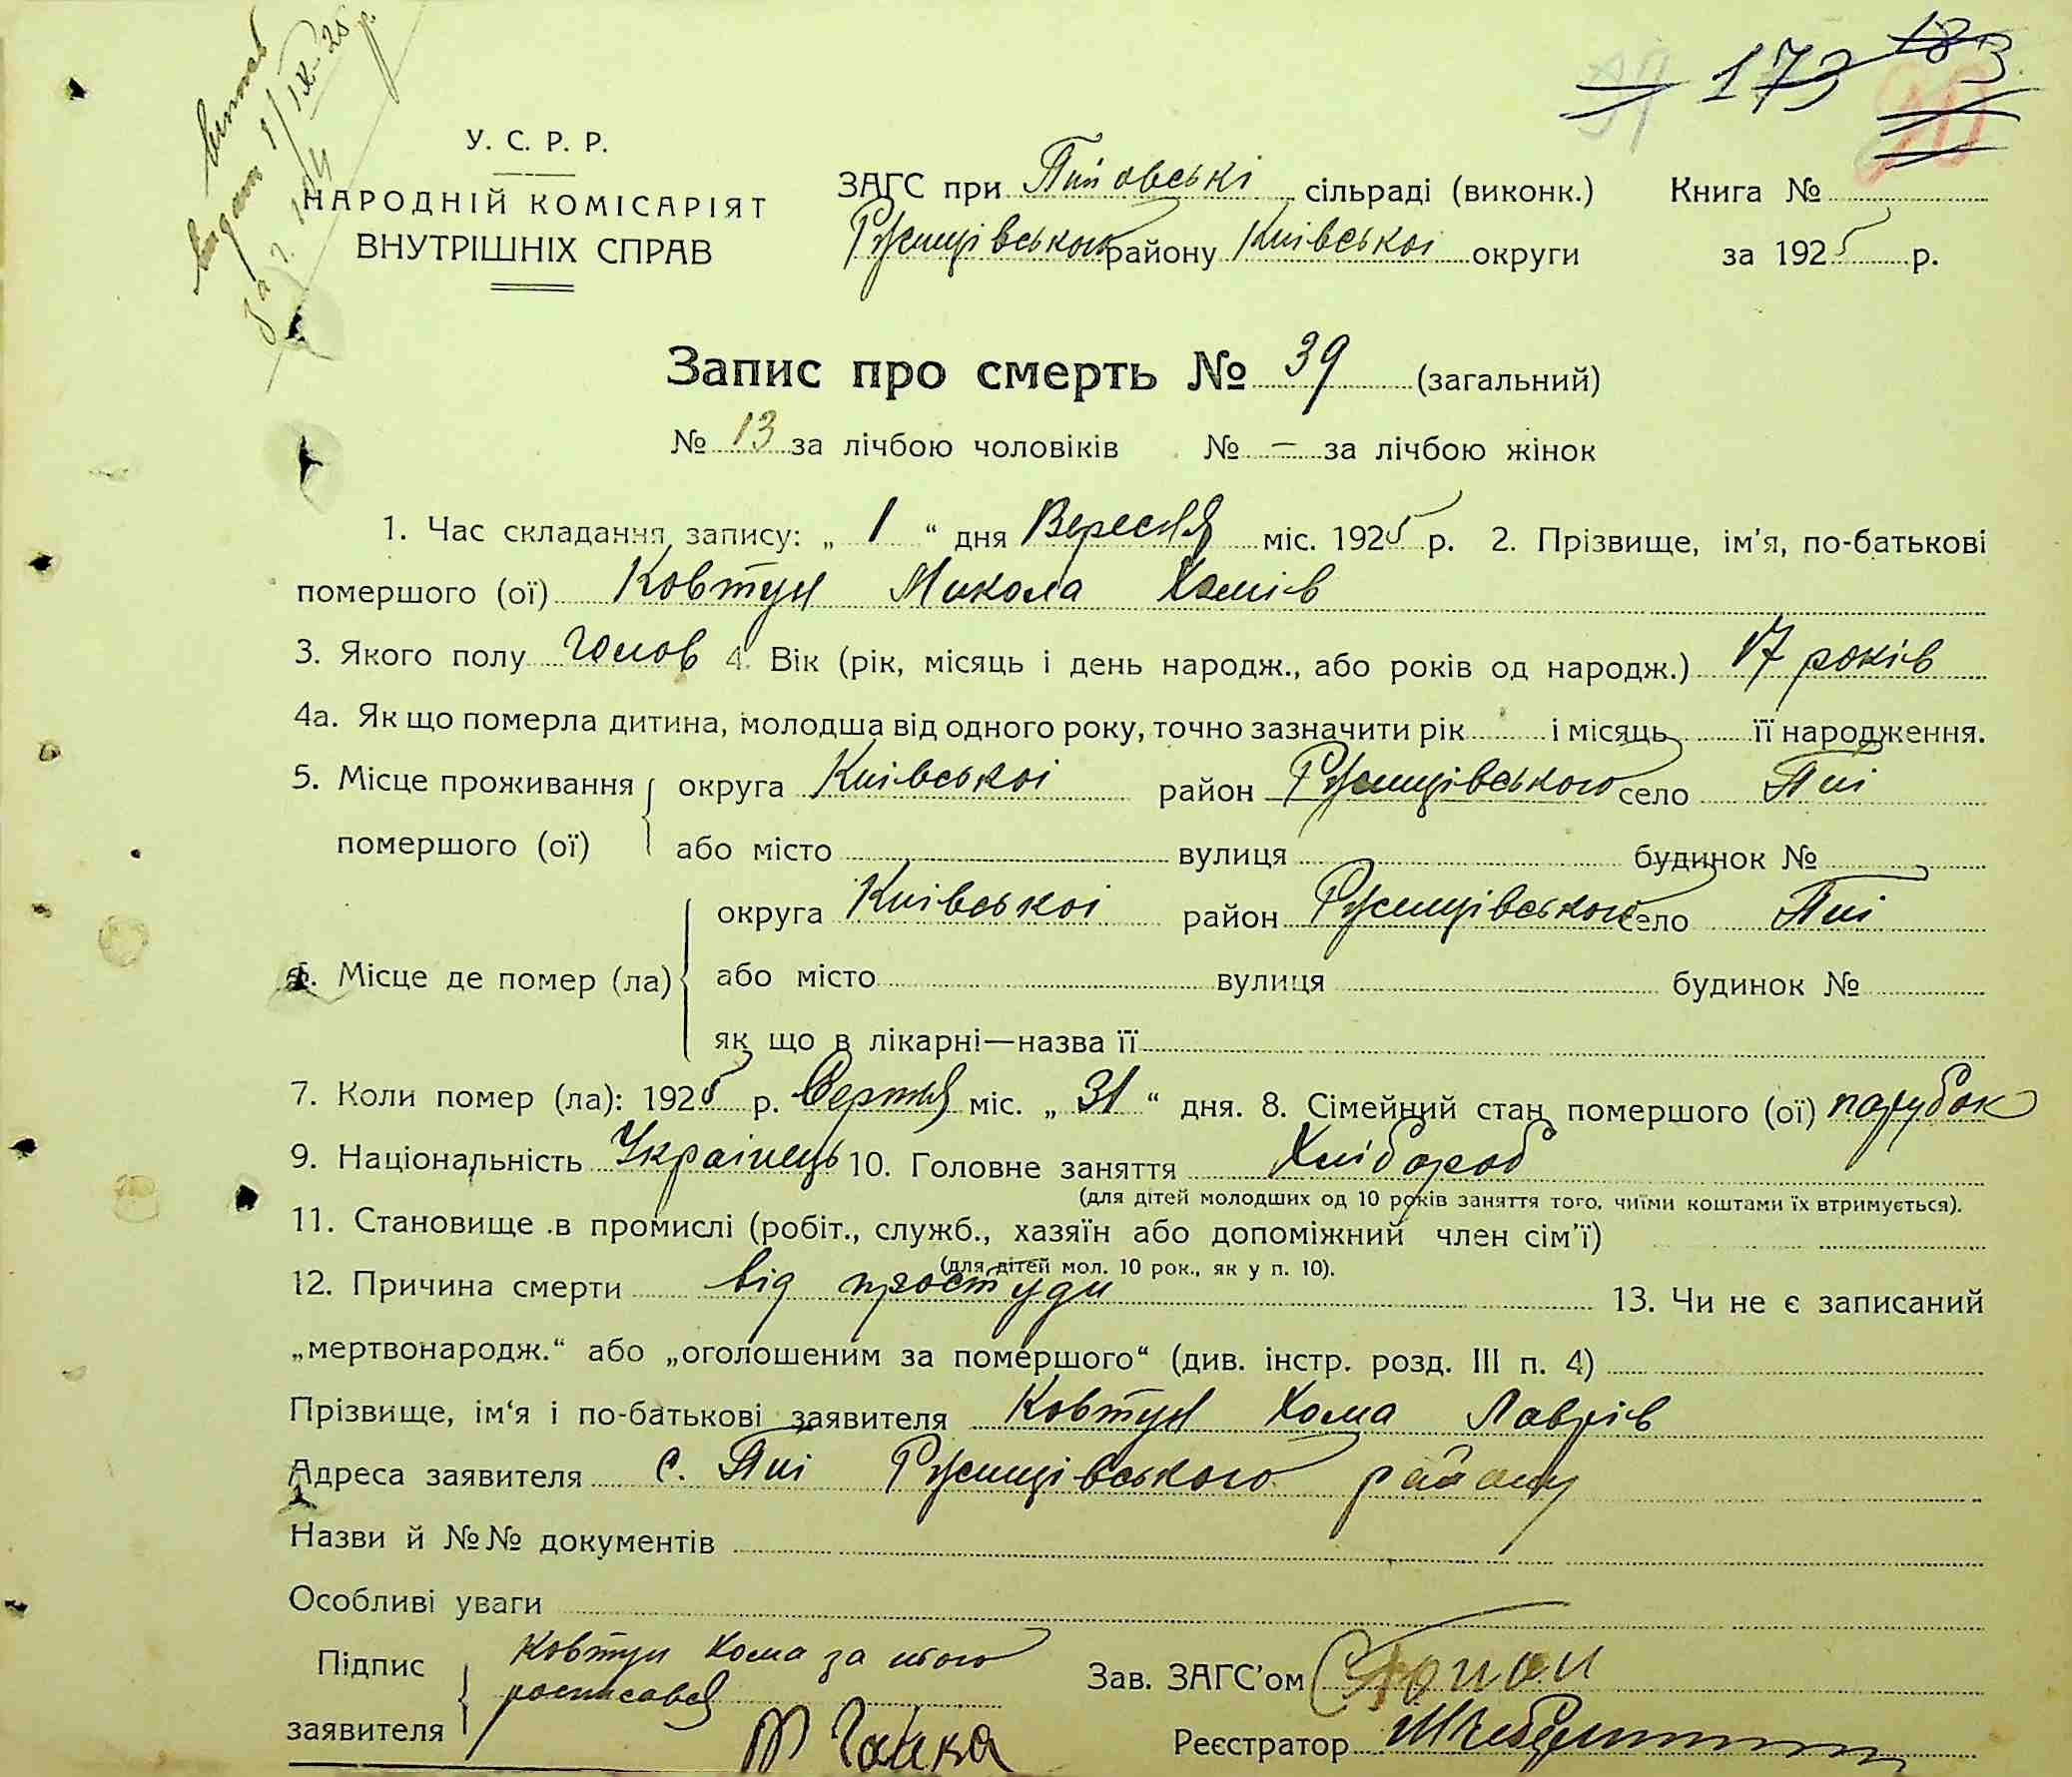 витяг
видати 1/IX-25 р.
За №
173 183
У. С. Р. Р.
НАРОДНІЙ КОМІСАРІЯТ
ВНУТРІШНІХ СПРАВ
ЗАГС при Піївські сільраді (виконк.) Книга №
Ржищівського району Київської округи за 1925 р.
Запис про смерть № 39 (загальний)
№ 13 за лічбою чоловіків № — за лічбою жінок
1. Час складання запису: „ 1 “ дня Вересня міс. 1925 р. 2. Прізвище, ім'я, по-батькові
помершого (ої) Ковтун Микола Хомів
3. Якого полу чолов 4. Вік (рік, місяць і день народж., або років од народж.) 17 років
4а. Як що померла дитина, молодша від одного року, точно зазначити рік і місяць її народження.
5. Місце проживання округа Київської район Ржищівського село Пії
помершого (ої) або місто вулиця будинок №
округа Київської район Ржищівського село Пії
6. Місце де помер (ла) або місто вулиця будинок №
як що в лікарні—назва її
7. Коли помер (ла): 1925 р. Серпня міс. „ 31 “ дня. 8. Сімейний стан помершого (ої) парубок
9. Національність Українець 10. Головне заняття Хлібороб
(для дітей молодших од 10 років заняття того, чиїми коштами їх втримується).
11. Становище в промислі (робіт., служб., хазяїн або допоміжний член сім'ї)
(для дітей мол. 10 рок., як у п. 10).
12. Причина смерти від простуди 13. Чи не є записаний
„мертвонародж.“ або „оголошеним за помершого“ (див. інстр. розд. III п. 4)
Прізвище, ім‘я і по-батькові заявителя Ковтун Хома Лаврів
Адреса заявителя с. Пії Ржищівського району
Назви й №№ документів
Особливі уваги
Підпис Ковтун Хома за нього Зав. ЗАГС'ом
росписався
заявителя Реєстратор